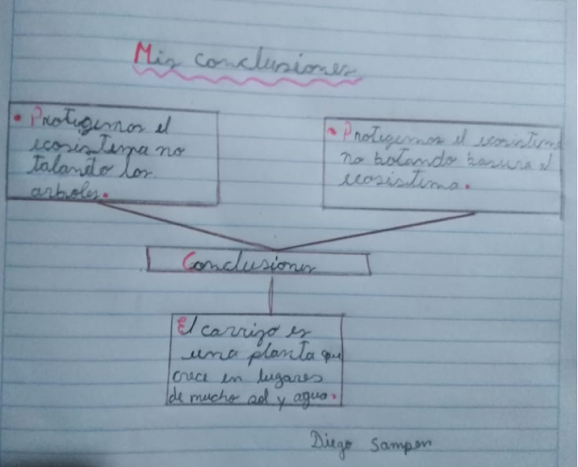 Mis conclusiones
• Protegemos el
ecosistema no
talando los
arboles.
• Protegemos el ecosistema
no botando basura al
ecosistema.
Conclusiones
El carrizo es
una planta que
crece en lugares
de mucho sol y agua.
Diego Sampen